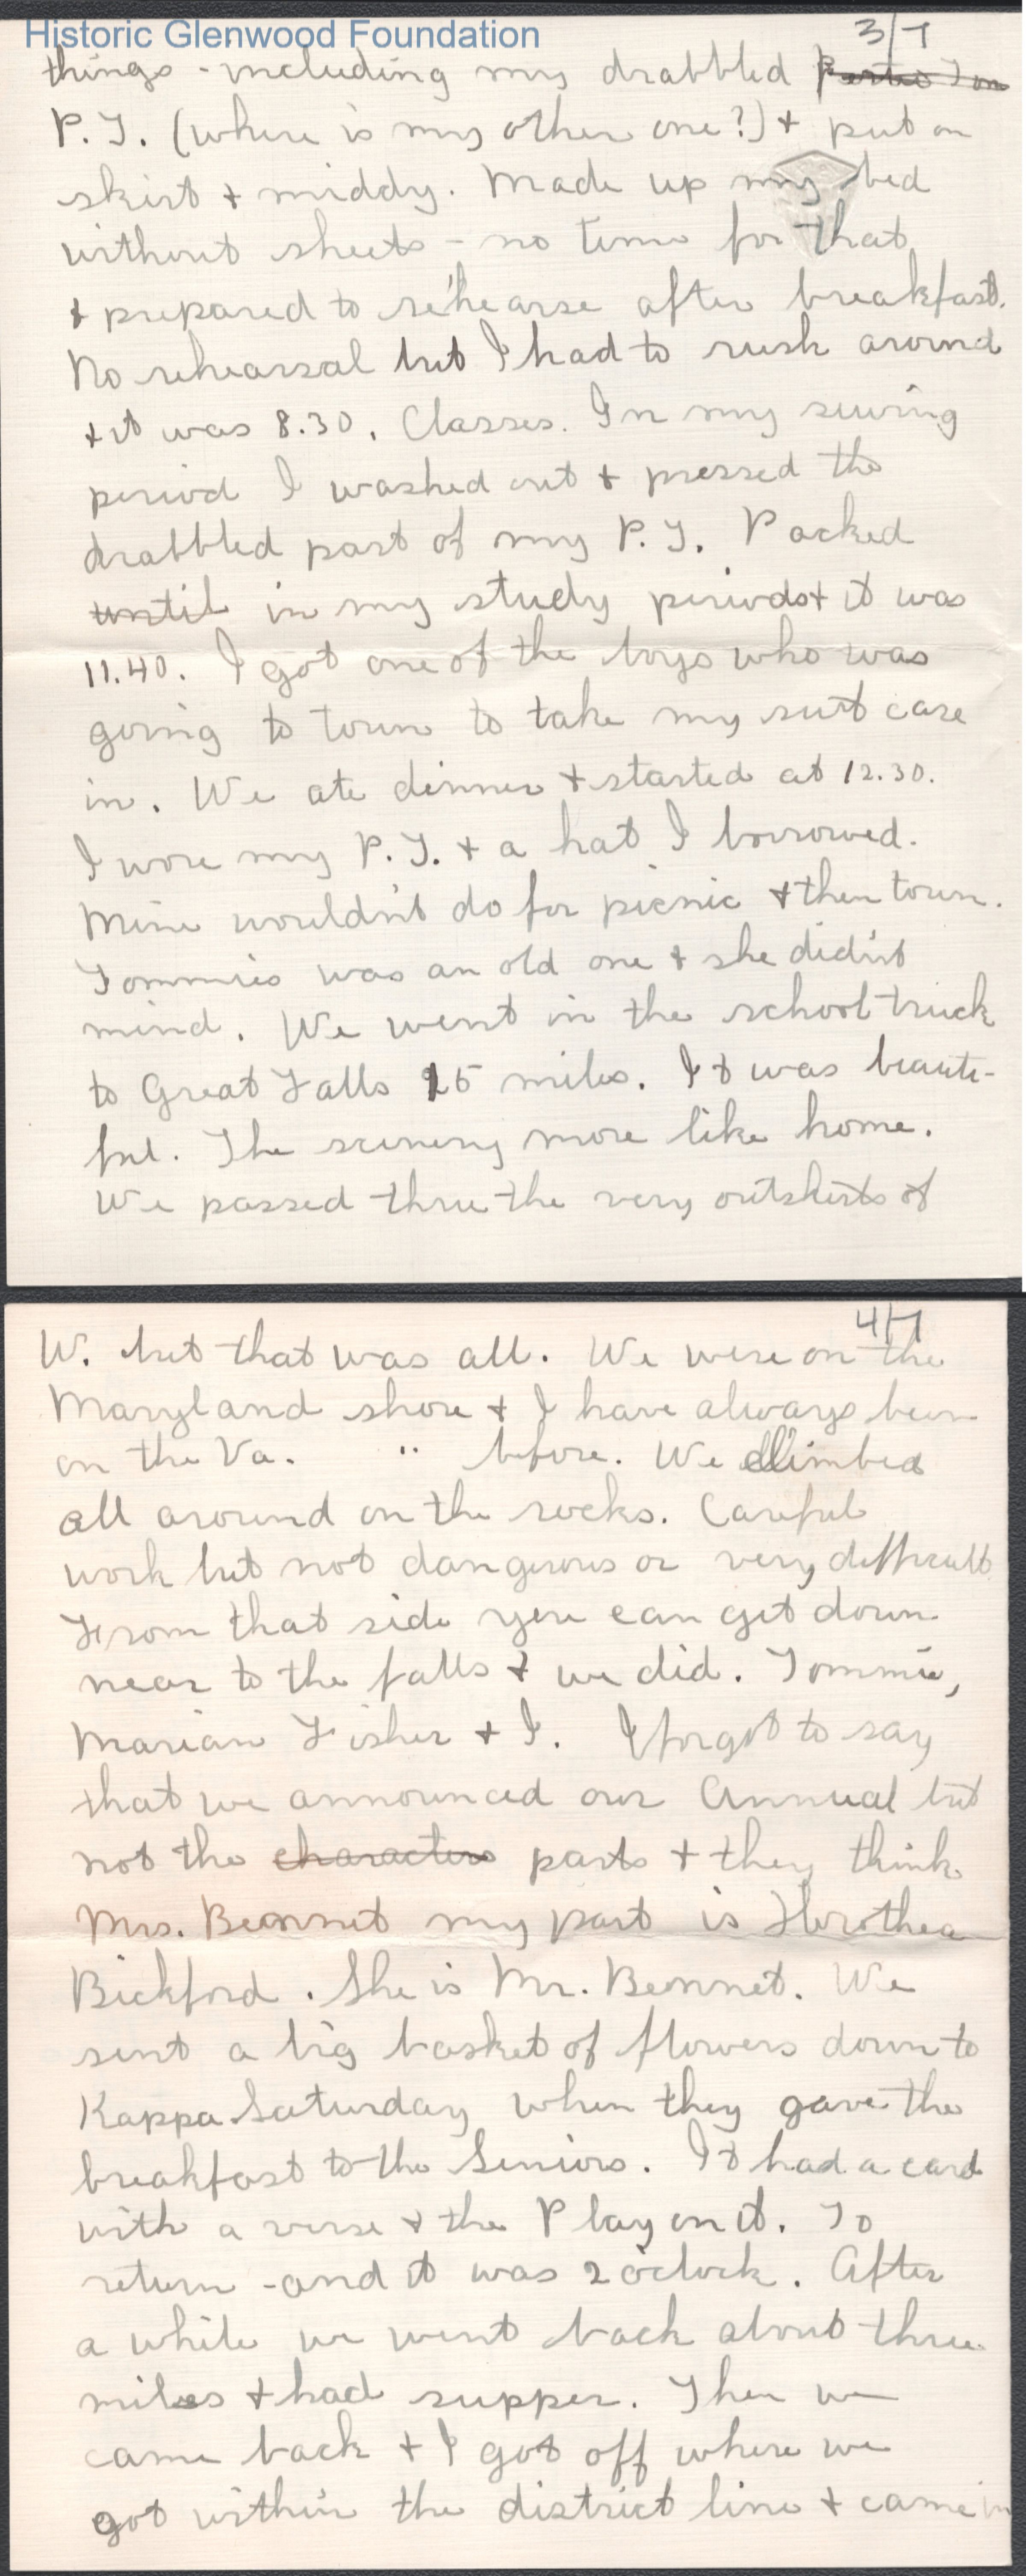 Historic Glenwood Foundation
3/7
things - including my drabbled
P.T. (where is my other one?) + put on
skirt + middy. Made up my bed
without sheets - no time for that,
+ prepared to rehearse after breakfast.
No rehearsal but I had to rush around
+ it was 8.30. Classes. In my sewing
period I washed out + pressed the
drabbled part of my P.T. Packed
until in my study periods + it was
11.40. I got one of the boys who was
going to town to take my suit case
in. We ate dinner + started at 12.30.
I wore my P.T. + a hat I borrowed.
Mine wouldn't do for picnic + then town.
Tommies was an old one + she didn't
mind. We went in the school truck
to Great Falls 15 miles. It was beauti-
ful. The scenery more like home.
We passed thru the very outskirts of
4/7
W. but that was all. We were on the
Maryland shore + I have always been
on the Va. " before. We climbed
all around on the rocks. Careful
work but not dangerous or very difficult.
From that side you can get down
near to the falls + we did. Tommie,
Marian Fisher + I. I forgot to say
that we announced our Annual but
not the characters parts + they think
Mrs. Bennet my part is
Bickford. She is Mr. Bennet. We
sent a big basket of flowers down to
Kappa Saturday when they gave the
breakfast to the Seniors. It had a card
with a verse + the Play on it. To
return - and it was 2 o'clock. After
a while we went back about three
miles + had supper. Then we
came back + I got off where we
got within the district line + came in